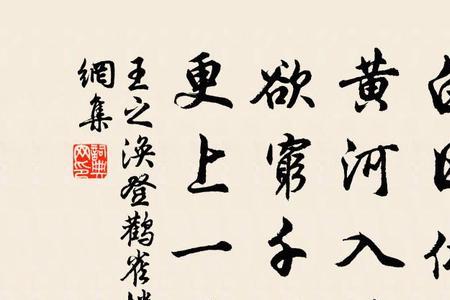 白日依
黄河入
欲窮千
更上一
王之渙登鸛雀
網集